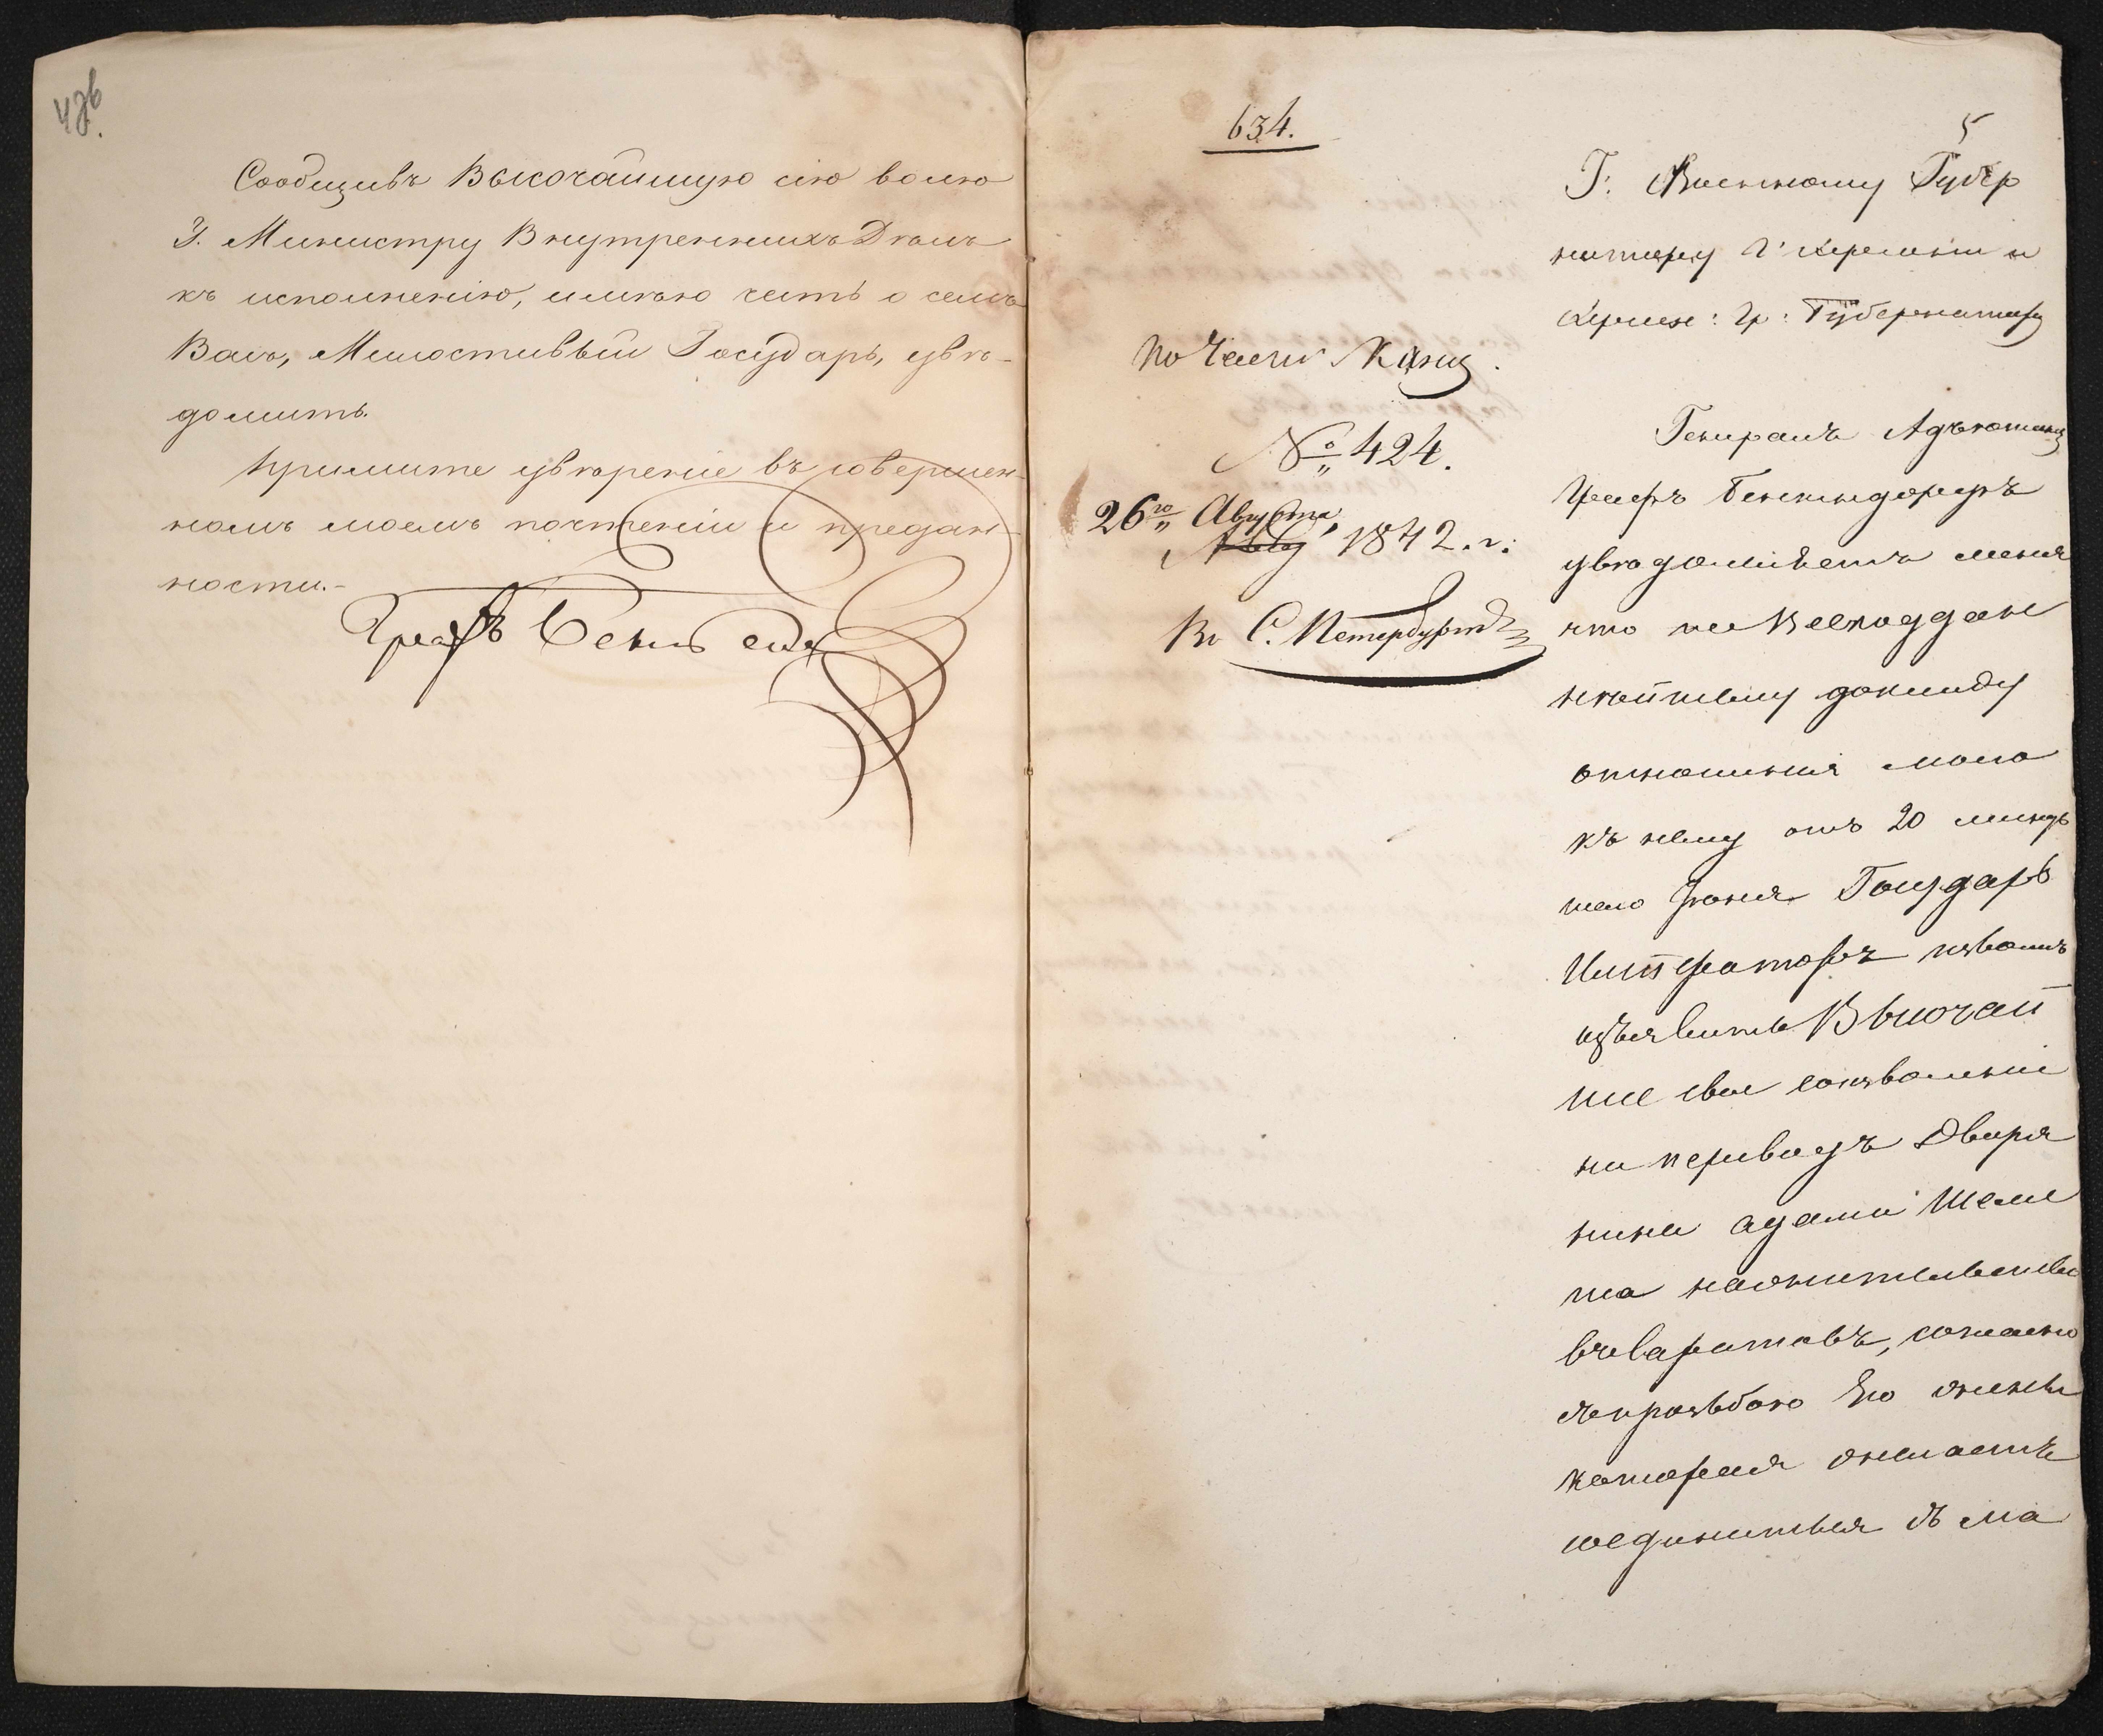 4 об.
Сообщивъ Высочайшую сію волю
Г. Министру Внутреннихъ Дѣлъ
къ исполненію, имѣю честь о семъ
Васъ, Милостивый Государь, увѣ-
домить.
Примите увѣреніе въ совершен-
номъ моемъ почтеніи и предан-
ности.-
Графъ Бенкендо
634.
По части Канц.
№ 424.
26го Августа
1842. г.
Въ С. Петербургъ
5
Г. Военному Губер
натору г. Херсона и
Херсон: Гр: Губернатору
Генералъ Адъютантъ
Графъ Бенкендорфъ
увѣдомляетъ меня
что по Всеподдан
нѣйшему докладу
отношенія моего
къ нему отъ 20 минув
шаго Іюня Государь
Императоръ изволилъ
изъявить Высочай
шее свое соизволеніе
на переводъ Дворя
нина Адама Шеме
та на жительство
въ Саратовъ, согласно
съ прозьбою Его жены
которая желаетъ
соединиться съ ма